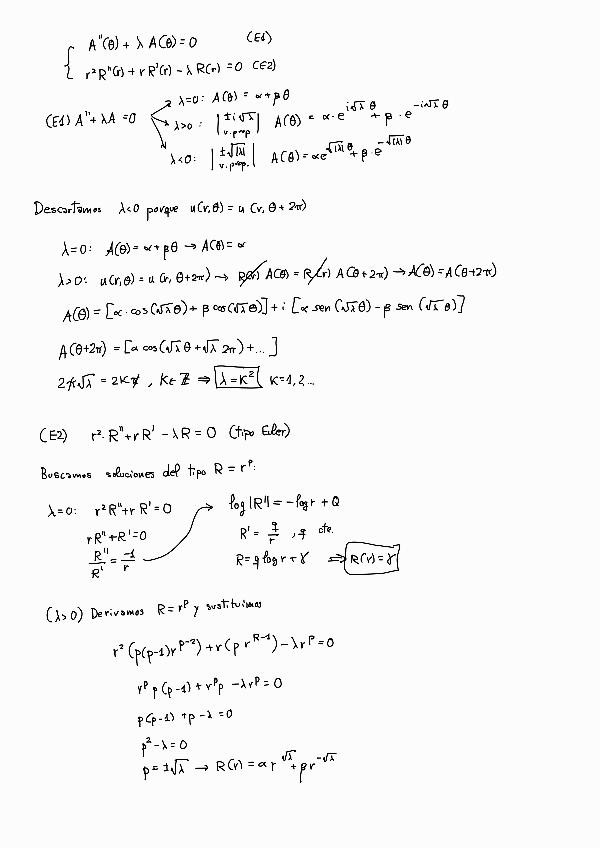 A''(θ) + λ A(θ) = 0 (E1)
r² R''(r) + r R'(r) - λ R(r) = 0 (E2)
(E1) A'' + λA = 0
λ=0: A(θ) = α + βθ
λ>0: |±i√λ| v. prop. A(θ) = α·e^{i√λ θ} + β·e^{-i√λ θ}
λ<0: |±√|λ|| v. prop. A(θ) = αe^{√|λ| θ} + β·e^{-√|λ| θ}
Descartamos λ<0 porque u(r,θ) = u(r, θ+2π)
λ=0: A(θ) = α + βθ → A(θ) = α
λ>0: u(r,θ) = u(r, θ+2π) → R(r) A(θ) = R(r) A(θ+2π) → A(θ) = A(θ+2π)
A(θ) = [α·cos(√λ θ) + β cos(√λ θ)] + i [α sen(√λ θ) - β sen(√λ θ)]
A(θ+2π) = [α cos(√λ θ + √λ 2π) + ...]
2π√λ = 2Kπ, K∈ℤ ⇒ λ = K² K=1,2...
(E2) r²·R'' + rR' - λR = 0 (tipo Euler)
Buscamos soluciones del tipo R = r^p:
λ=0: r²R'' + rR' = 0 → log|R'| = -log r + Q
rR'' + R' = 0 R' = q/r, q cte.
R''/R' = -1/r R = q log r + γ ⇒ R(r) = γ
(λ>0) Derivamos R = r^p y sustituimos
r² (p(p-1)r^{p-2}) + r(p r^{R-1}) - λr^p = 0
r^p p(p-1) + r^p p - λr^p = 0
p(p-1) + p - λ = 0
p² - λ = 0
p = ±√λ → R(r) = α r^{√λ} + β r^{-√λ}